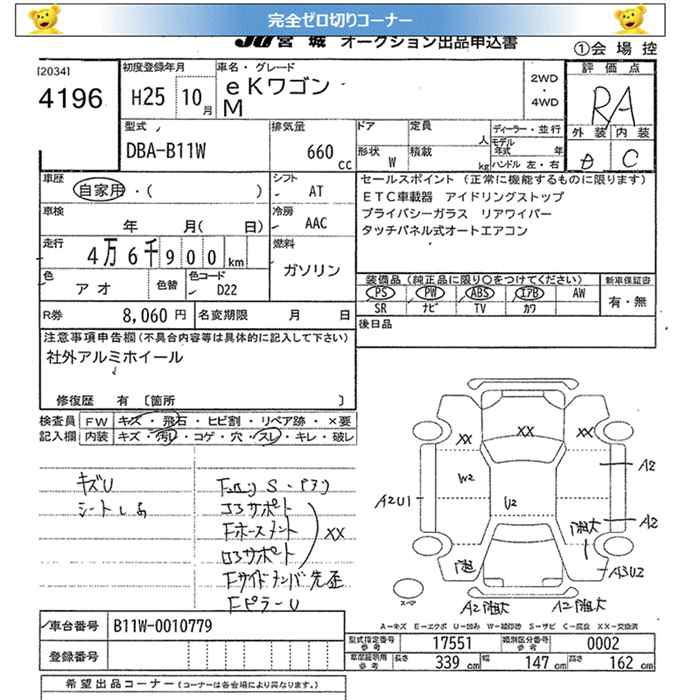 完全ゼロ切りコーナー
JU宮城 オークション出品申込書
①会場控
[2034]
4196
初度登録年月
H25 10月
車名・グレード
eKワゴン
M
2WD
・
4WD
評価点
RA
外装 内装
D C
型式
DBA-B11W
排気量
660 cc
ドア 定員 人
形状 W 積載 kg
ディーラー・並行
モデル年式 年
ハンドル 左・右
車歴
自家用・( )
シフト
AT
車検
年 月( 日)
冷房
AAC
走行
4万6千900km
燃料
ガソリン
色
アオ
色替
色コード
D22
R券 8,060円
名変期限 月 日
セールスポイント (正常に機能するものに限ります)
ETC車載器 アイドリングストップ
プライバシーガラス リアワイパー
タッチパネル式オートエアコン
装備品 (純正品に限り○をつけてください)
PS PW ABS エアB AW
SR ナビ TV カワ
新車保証書
有・無
後日品
注意事項申告欄(不具合内容等は具体的に記入して下さい)
社外アルミホイール
修復歴 有 〔箇所 〕
検査員記入欄
FW キズ・飛石・ヒビ割・リペア跡・×要
内装 キズ・汚れ・コゲ・穴・スレ・キレ・破レ
キズU
シートしみ
コアサポート
Fホースメント
ロアサポート
XX
Fサイドメンバ先歪
FピラーU
XX
XX
XX
W2
U2
A2U1
A2
A2
A3U2
A2
A2
スペア
A=キズ E=エクボ U=凹み W=補修跡 S=サビ C=腐食 XX=交換済
車台番号 B11W-0010779
登録番号
型式指定番号 参考 17551
類別区分番号 参考 0002
車庫証明用 参考 長さ 339 cm 幅 147 cm 高さ 162 cm
希望出品コーナー (コーナーは各会場により異なります。)